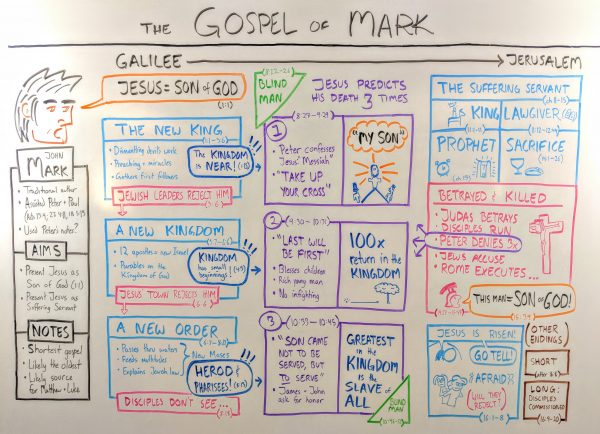 THE GOSPEL OF MARK
GALILEE
JERUSALEM
JESUS = SON of GOD
(1:1)
JOHN
MARK
• Traditional author
• Assisted Peter + Paul
• Used Peter's notes?
AIMS
• Present Jesus as
Son of God (1:1)
• Present Jesus as
Suffering Servant
NOTES
• Shortest gospel
• Likely the oldest
• Likely source
for Matthew + Luke
THE NEW KING
• Dismantling devil's work
• Preaching + miracles
• Gathers first followers
The
KINGDOM
is NEAR!
JEWISH LEADERS REJECT HIM
A NEW KINGDOM
• 12 apostles = new Israel
• Parables on the
Kingdom of God
KINGDOM
has small
beginnings!
JESUS' TOWN REJECTS HIM
A NEW ORDER
• Passes thru waters
• Feeds multitudes
• Explains Jewish law
New Moses
HEROD +
PHARISEES!
DISCIPLES DON'T SEE...
(8:22-26)
BLIND
MAN
JESUS PREDICTS
HIS DEATH 3 TIMES
(8:27 - 9:29)
1
• Peter confesses
Jesus "Messiah"
• "TAKE UP
YOUR CROSS"
"MY SON"
(9:30 - 10:31)
2
• "LAST WILL
BE FIRST"
• Blesses children
• Rich young man
• No infighting
100x
return in the
KINGDOM
(10:32 - 10:45)
3
• "SON CAME
NOT TO BE
SERVED, BUT
TO SERVE"
• James + John
ask for honor
GREATEST
in the
KINGDOM
is the
SLAVE of
ALL
BLIND
MAN
THE SUFFERING SERVANT
KING
LAWGIVER
PROPHET
SACRIFICE
BETRAYED + KILLED
• JUDAS BETRAYS
• DISCIPLES RUN
• PETER DENIES 3x
• JEWS ACCUSE
• ROME EXECUTES...
THIS MAN = SON of GOD!
(15:39)
JESUS IS RISEN!
GO TELL!
AFRAID
WILL THEY
REJECT?
16:1-8
OTHER
ENDINGS
SHORT
(after 16:8)
LONG:
DISCIPLES
COMMISSIONED
(16:9-20)